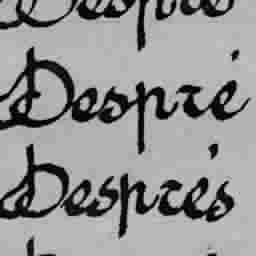 Despré
Després